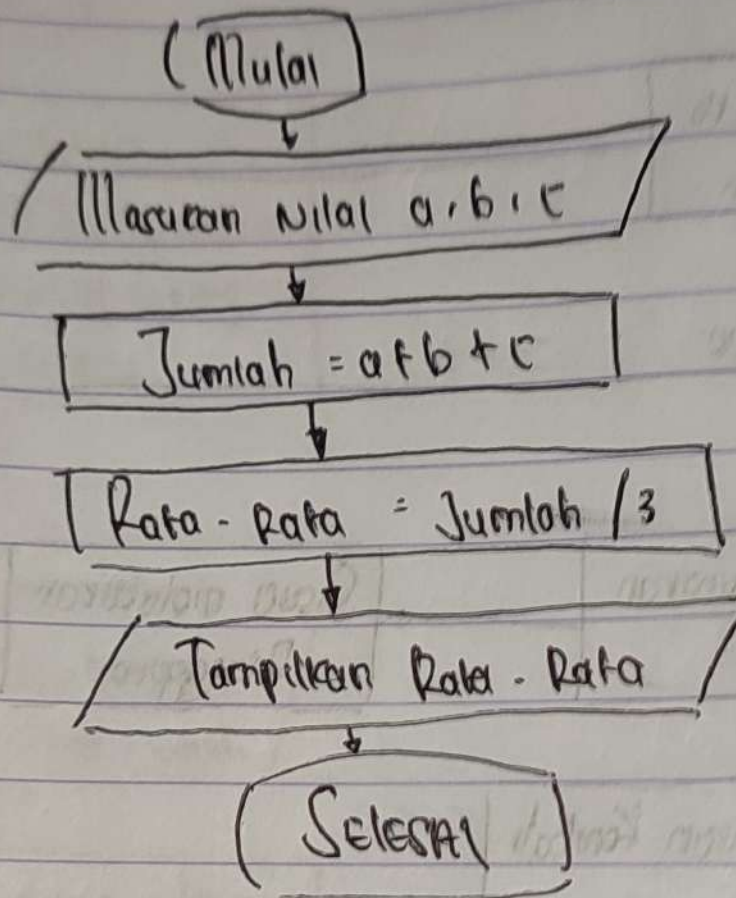 Mulai
Masukan Nilai a, b, c
Jumlah = a + b + c
Rata - Rata = Jumlah / 3
Tampilkan Rata - Rata
SELESAI